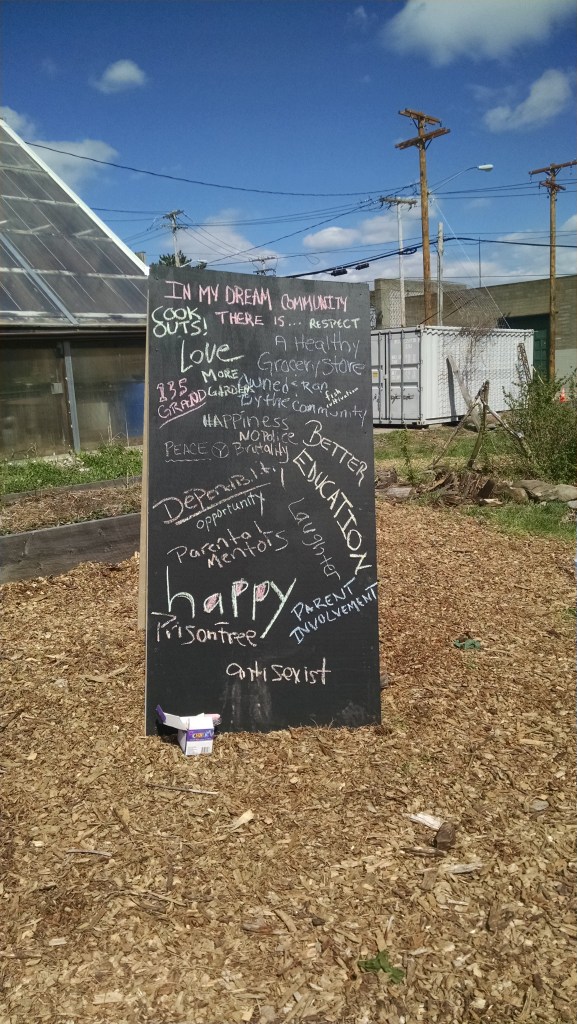 IN MY DREAM COMMUNITY
THERE IS... RESPECT
COOK
OUTS!
Love
A Healthy
Grocery Store
owned & Ran
By the community
MORE
GARDENS
135
GRAND
fresh
HAPPINESS
NO Police
Brutality
PEACE
BETTER
EDUCATION
Dependability
opportunity
Laughter
Parental
Mentors
happy
PARENT
INVOLVEMENT
Prison free
antisexist